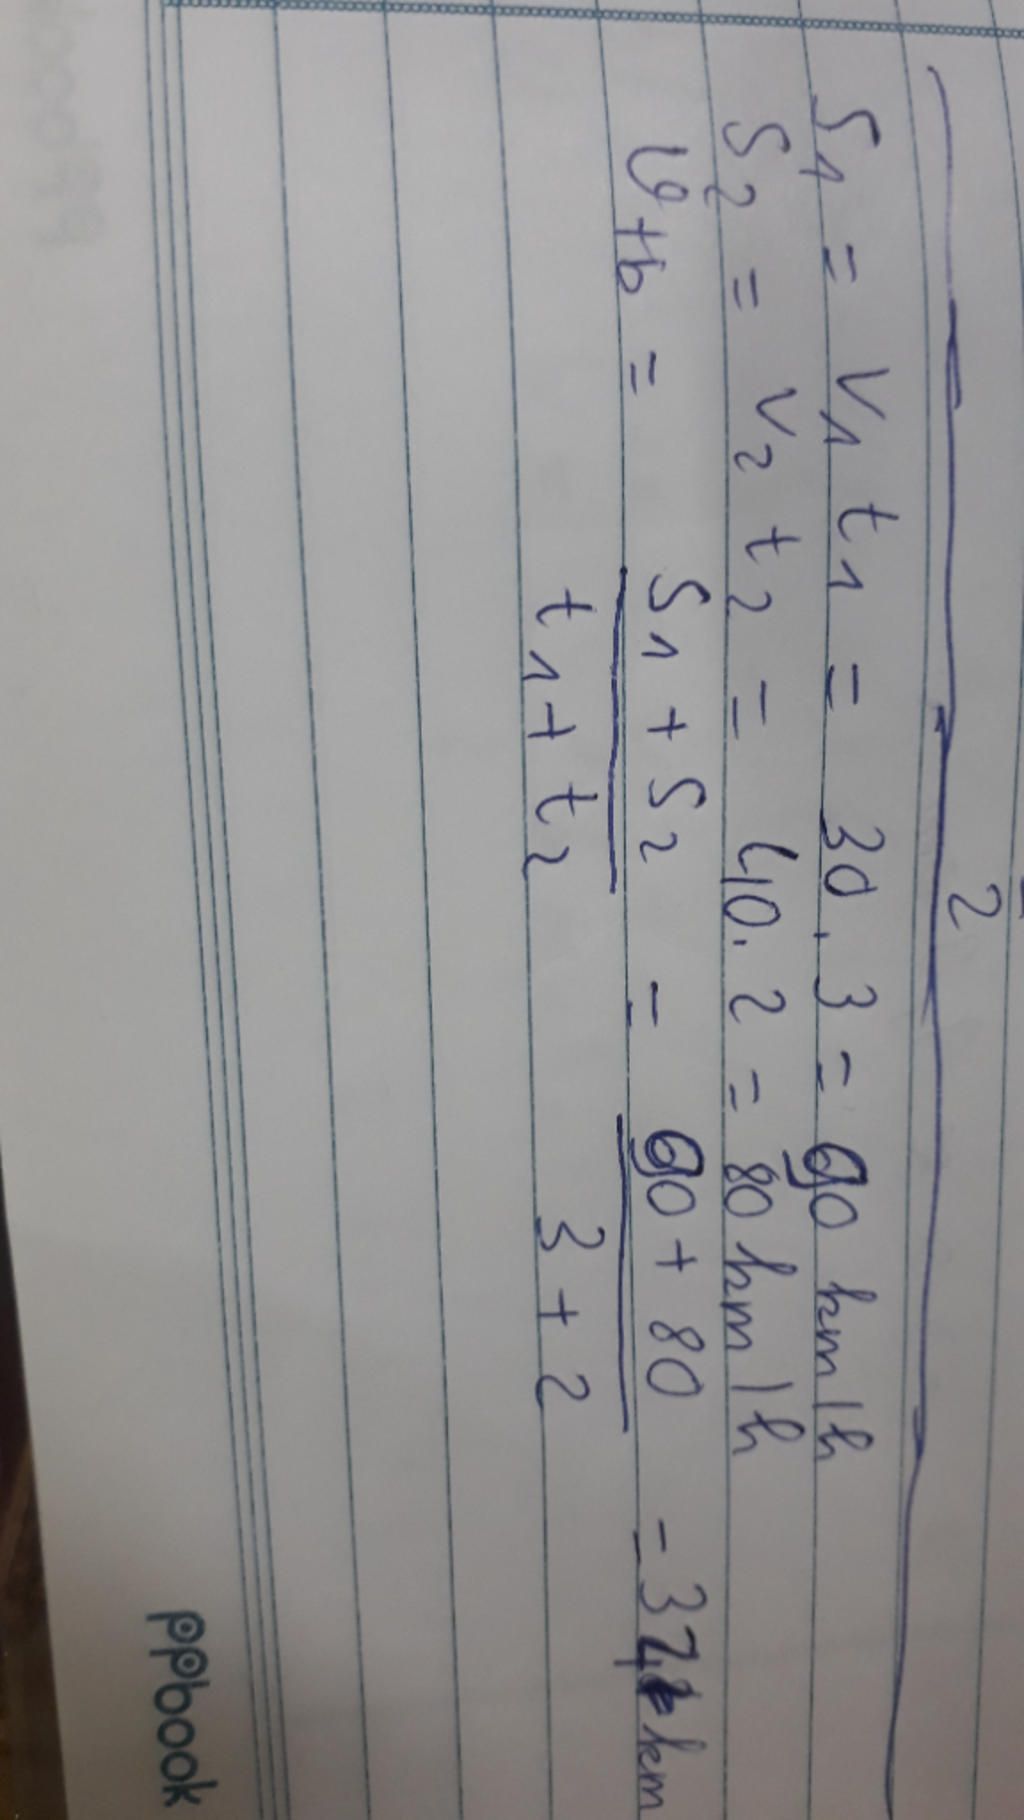 2
S1 = V1 t1 = 30 . 3 = 90 km/h
S2 = V2 t2 = 40 . 2 = 80 km/h
Vtb = S1 + S2 / t1 + t2 = 90 + 80 / 3 + 2 = 34 km
ppbook